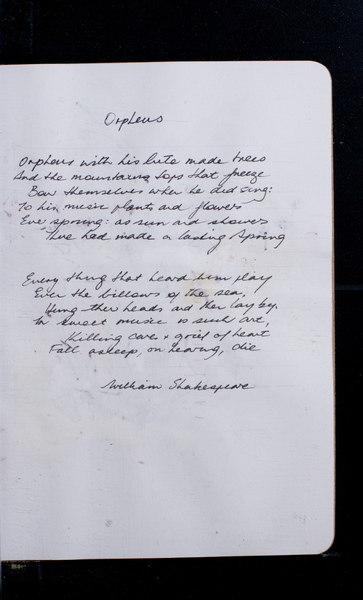 Orpheus
Orpheus with his lute made trees
And the mountains tops that freeze
Bow themselves when he did sing:
To his music plants and flowers
Ever spring: as sun and showers
There had made a lasting Spring
Every thing that heard him play
Even the billows of the sea,
Hung their heads and then lay by.
In sweet music is such art,
Killing care & grief of heart
Fall asleep, on hearing, die
William Shakespeare